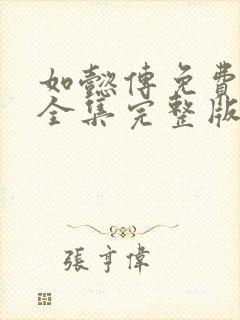 如懿傳免費
全集完整版
張亨偉